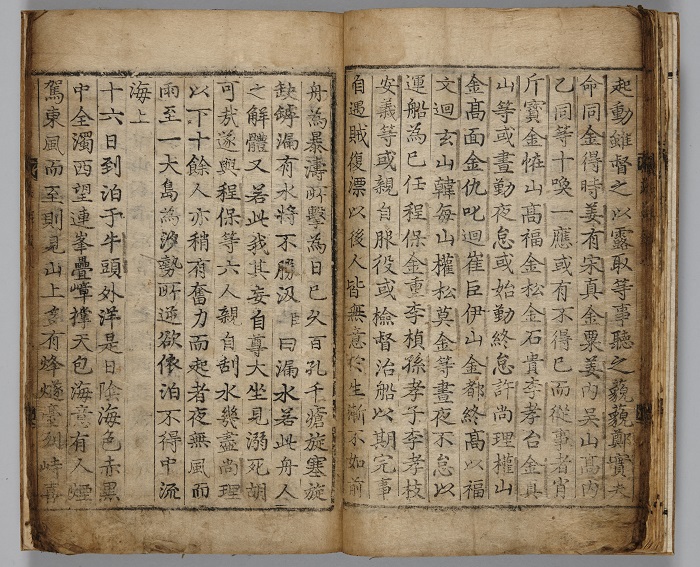 起動雖督之以露取等事聽之藐藐鄭實夫
命同金得時姜有宋真金粟姜內吳山高內
乙同等十喚一應或有不得已而從事者肖
斤寶金恠山高福金松金石貴李孝台金真
山等或晝勤夜怠或始勤終怠許尚理權山
金高面金仇叱廻崔巨伊山金都終高以福
文廻玄山韓每山權松莫金等晝夜不怠以
運船為己任程保金重李楨孫孝子李孝枝
安義等或親自服役或檢督治船以期完事
自遇賊復漂以後人皆無意於生漸不如前
舟為暴濤所擊為日已久百孔千瘡旋塞旋
缺罅漏有水將不勝汲臣曰漏水若此舟人
之解體又若此我其妄自尊大坐見溺死胡
可哉遂與程保等六人親自刮水幾盡尚理
以下十餘人亦稍有奮力而起者夜無風而
雨至一大島為汐勢所逆欲依泊不得中流
海上
十六日到泊于牛頭外洋是日陰海色赤黑
中全濁西望連峯疊嶂撑天包海意有人煙
駕東風而至則見山上多有烽燧臺列峙喜